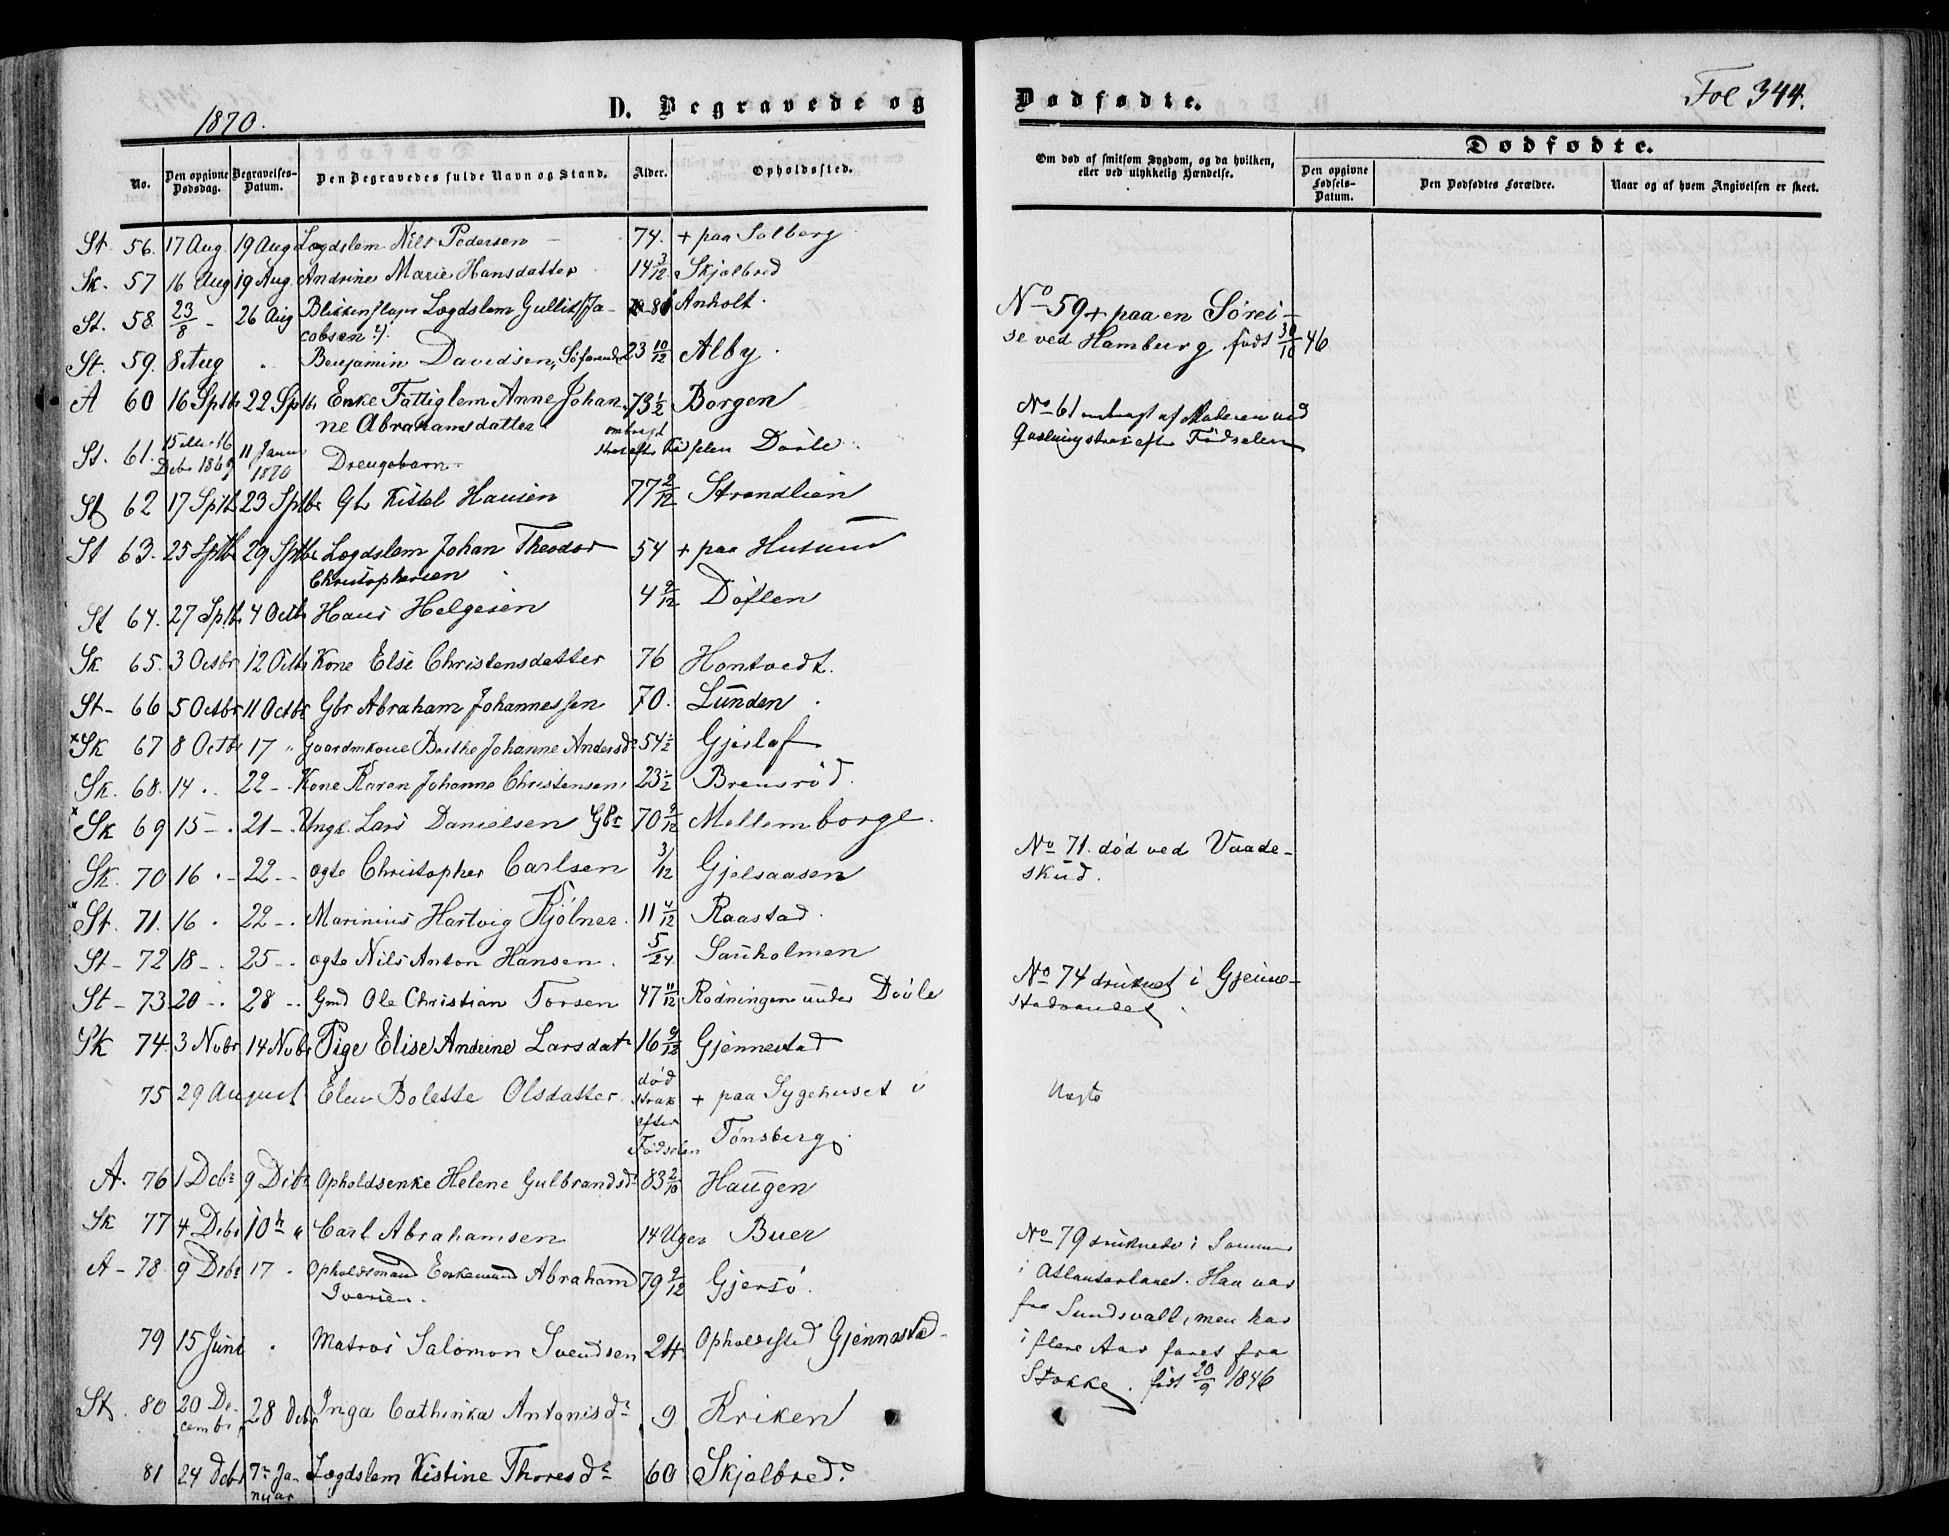 1870.
D. Begravede og
No.
Den opgivne Dødsdag.
Begravelses-Datum.
Den Begravedes fulde Navn og Stand.
Alder.
Opholdssted.
St. 56. 17 Aug. 19 Aug Lægdslem Nils Pedersen 74. + paa Solberg
Sk. 57 16 Aug 19 Aug. Andrine Marie Hansdatter 14 3/12 Skjelbred
St. 58. 23/8 - 26 Aug Lægdslem Gullik Ja-
cobsen Anholt.
St. 59. 8 Aug Benjamin Davidsen, 23 10/12 Alby.
A 60 16 Sptbr 22 Sptbr Enke Fattiglem Anne Johan- 73 1/2 Borgen
ne Abrahamsdatter
St. 61. 15 eller 16 Debr 1869 11 Januar 1870 Drengebarn ombragt strax efter Fødselen Døvle
St 62 17 Sptb 23 Sptbr Kittel Hansen 77 2/12 Strandlien
St 63. 25 Sptb 29 Sptbr Lægdslem Johan Theodor 54 + paa
Christophersen
St 64. 27 Sptb 4 Octbr Hans Helgesen 4 9/12 Døflen
Sk 65. 3 Octbr 12 Octbr Kone Else Christensdatter 76 Hontvedt.
St- 66 5 Octbr 11 Octbr Gbr Abraham Johannessen 70. Lunden
Sk 67 8 Octbr 17 " Gaardmkone Berthe Johanne Andersdr 54 1/2 Gjerlof
Sk. 68. 14 . 22 - Kone Karen Johanne Christensen 23 1/2 Bremsrød.
Sk 69 15 - . 21 - . Ungk. Lars Danielsen Gbr 70 9/12 Mellemborge.
Sk. 70 16 . - 22 - - ægte Christopher Carlsen 3/12 Gjelsaasen
St. 71. 16 . 22 - . Marinius Hartvig Kjølner. 11 4/12 Raastad.
St- 72 18 - . 25 - . ægte Nils Anton Hansen. 5/24 Sauholmen
St- 73 20 - . 28 - . Gmd Ole Christian Torsen 47 11/12 Rødningen under Døvle
Sk 74. 3 Nvbr 14 Nvbr Pige Elise Andrine Larsdatr 16 9/12 Gjennestad
75 29 August Elen Bolette Olsdatter. død strax efter Fødselen + paa Sygehuset i
Tønsberg.
A. 76 1 Debr 9 Debr Opholdsenke Helene Gulbrandsdr 83 2/10 Haugen
Sk 77 4 Debr 10 " Carl Abrahamsen 14 Uger Buer
A- 78. 9 Debr 17 . Opholdsmand Enkemand Abraham 79 2/12 Gjersø.
Iversen.
79 15 Juni . Matros Salomon Svendsen 24 Opholdssted Gjennestad
St. 80 20 De-
cembr 28 Debr Inga Cathinka Antonisdr 9 Kriken
81 24 Debr 7de Ja-
nuar Lægdslem Kistine Thoresdr 60 Skjelbred.
Dødfødte.
Fol 344.
Om død af smitsom Sygdom, og da hvilken, eller ved ulykkelig Hændelse.
Dødfødte.
Den opgivne Fødsels-Datum.
Den Dødfødtes Forældre.
Naar og af hvem Angivelsen er skeet.
No 59 + paa en Sørei-
se ved Hamburg født 30/10 46
No 61 ombragt af Moderen ved
strax efter Fødselen
No 71. død ved Vaade-
skud.
No 74 druknet i Gjenne-
stadvandet.
Uægte
No 79 druknede i Sommer
i Atlanterhavet. Han var
fra Sundsvall, men har
i flere Aar faret fra
Stokke. født 20/9 1846